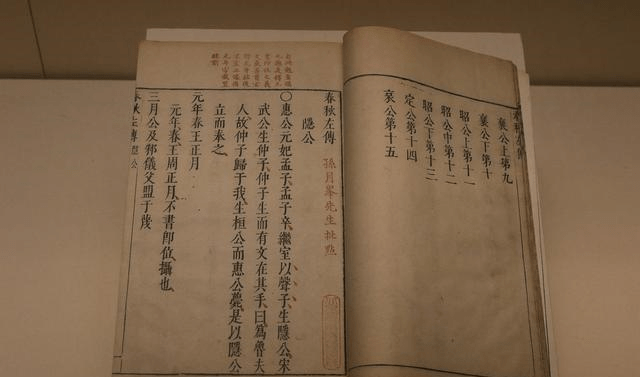 春秋左傳
襄公上第九
襄公下第十
昭公上第十一
昭公中第十二
昭公下第十三
定公第十四
哀公第十五
春秋左傳 孫月峯先生批點
隱公
〇惠公元妃孟子、孟子卒、繼室以聲子、生隱公、宋
武公生仲子、仲子生而有文在其手、曰爲魯夫
人、故仲子歸于我、生桓公而惠公薨、是以隱公
立而奉之
元年春王正月
元年春王周正月、不書卽位、攝也、
三月公及邾儀父盟于蔑
春秋左傳 隱公